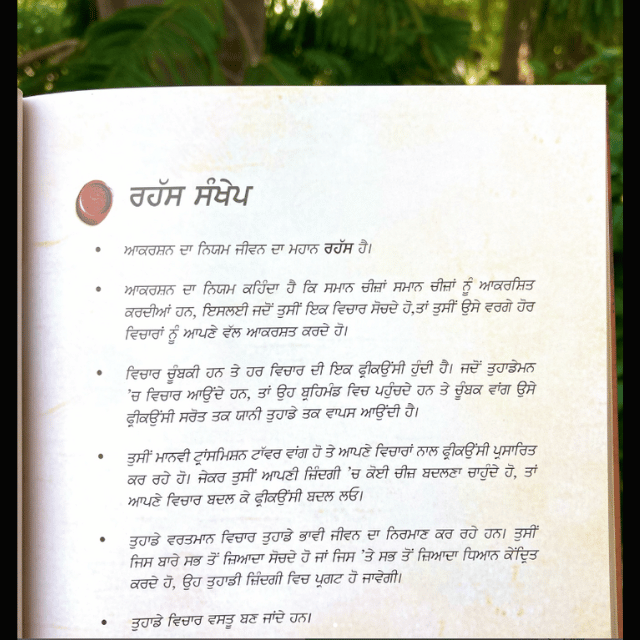 ਰਹੱਸ ਸੰਖੇਪ
• ਆਕਰਸ਼ਨ ਦਾ ਨਿਯਮ ਜੀਵਨ ਦਾ ਮਹਾਨ ਰਹੱਸ ਹੈ।
• ਆਕਰਸ਼ਨ ਦਾ ਨਿਯਮ ਕਹਿੰਦਾ ਹੈ ਕਿ ਸਮਾਨ ਚੀਜ਼ਾਂ ਸਮਾਨ ਚੀਜ਼ਾਂ ਨੂੰ ਆਕਰਸ਼ਿਤ
ਕਰਦੀਆਂ ਹਨ, ਇਸਲਈ ਜਦੋਂ ਤੁਸੀਂ ਇਕ ਵਿਚਾਰ ਸੋਚਦੇ ਹੋ,ਤਾਂ ਤੁਸੀਂ ਉਸੇ ਵਰਗੇ ਹੋਰ
ਵਿਚਾਰਾਂ ਨੂੰ ਆਪਣੇ ਵੱਲ ਆਕਰਸ਼ਤ ਕਰਦੇ ਹੋ।
• ਵਿਚਾਰ ਚੂੰਬਕੀ ਹਨ ਤੇ ਹਰ ਵਿਚਾਰ ਦੀ ਇਕ ਫ੍ਰੀਕਉਂਸੀ ਹੁੰਦੀ ਹੈ। ਜਦੋਂ ਤੁਹਾਡੇਮਨ
'ਚ ਵਿਚਾਰ ਆਉਂਦੇ ਹਨ, ਤਾਂ ਉਹ ਬ੍ਰਹਿਮੰਡ ਵਿਚ ਪਹੁੰਚਦੇ ਹਨ ਤੇ ਚੂੰਬਕ ਵਾਂਗ ਉਸੇ
ਫ੍ਰੀਕਉਂਸੀ ਸਰੋਤ ਤਕ ਯਾਨੀ ਤੁਹਾਡੇ ਤਕ ਵਾਪਸ ਆਉਂਦੀ ਹੈ।
• ਤੁਸੀਂ ਮਾਨਵੀ ਟ੍ਰਾਂਸਮਿਸ਼ਨ ਟਾੱਵਰ ਵਾਂਗ ਹੋ ਤੇ ਆਪਣੇ ਵਿਚਾਰਾਂ ਨਾਲ ਫ੍ਰੀਕਉਂਸੀ ਪ੍ਰਸਾਰਿਤ
ਕਰ ਰਹੇ ਹੋ। ਜੇਕਰ ਤੁਸੀਂ ਆਪਣੀ ਜ਼ਿੰਦਗੀ 'ਚ ਕੋਈ ਚੀਜ਼ ਬਦਲਣਾ ਚਾਹੁੰਦੇ ਹੋ, ਤਾਂ
ਆਪਣੇ ਵਿਚਾਰ ਬਦਲ ਕੇ ਫ੍ਰੀਕਉਂਸੀ ਬਦਲ ਲਓ।
• ਤੁਹਾਡੇ ਵਰਤਮਾਨ ਵਿਚਾਰ ਤੁਹਾਡੇ ਭਾਵੀ ਜੀਵਨ ਦਾ ਨਿਰਮਾਣ ਕਰ ਰਹੇ ਹਨ। ਤੁਸੀਂ
ਜਿਸ ਬਾਰੇ ਸਭ ਤੋਂ ਜ਼ਿਆਦਾ ਸੋਚਦੇ ਹੋ ਜਾਂ ਜਿਸ 'ਤੇ ਸਭ ਤੋਂ ਜ਼ਿਆਦਾ ਧਿਆਨ ਕੇਂਦ੍ਰਿਤ
ਕਰਦੇ ਹੋ, ਉਹ ਤੁਹਾਡੀ ਜ਼ਿੰਦਗੀ ਵਿਚ ਪ੍ਰਗਟ ਹੋ ਜਾਵੇਗੀ।
• ਤੁਹਾਡੇ ਵਿਚਾਰ ਵਸਤੂ ਬਣ ਜਾਂਦੇ ਹਨ।